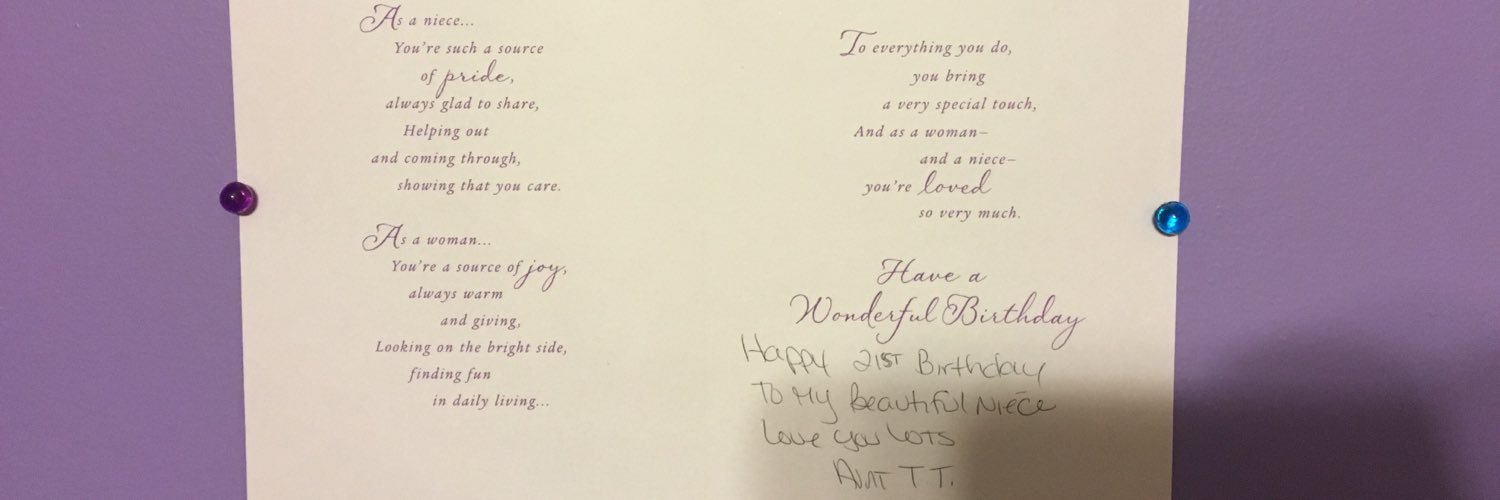 As a niece...
You're such a source
of pride,
always glad to share,
Helping out
and coming through,
showing that you care.
As a woman...
You're a source of joy,
always warm
and giving,
Looking on the bright side,
finding fun
in daily living...
To everything you do,
you bring
a very special touch,
And as a woman–
and a niece–
you're loved
so very much.
Have a
Wonderful Birthday
Happy 21ST Birthday
To My Beautiful Niece
Love you LOTS
Aunt T T.